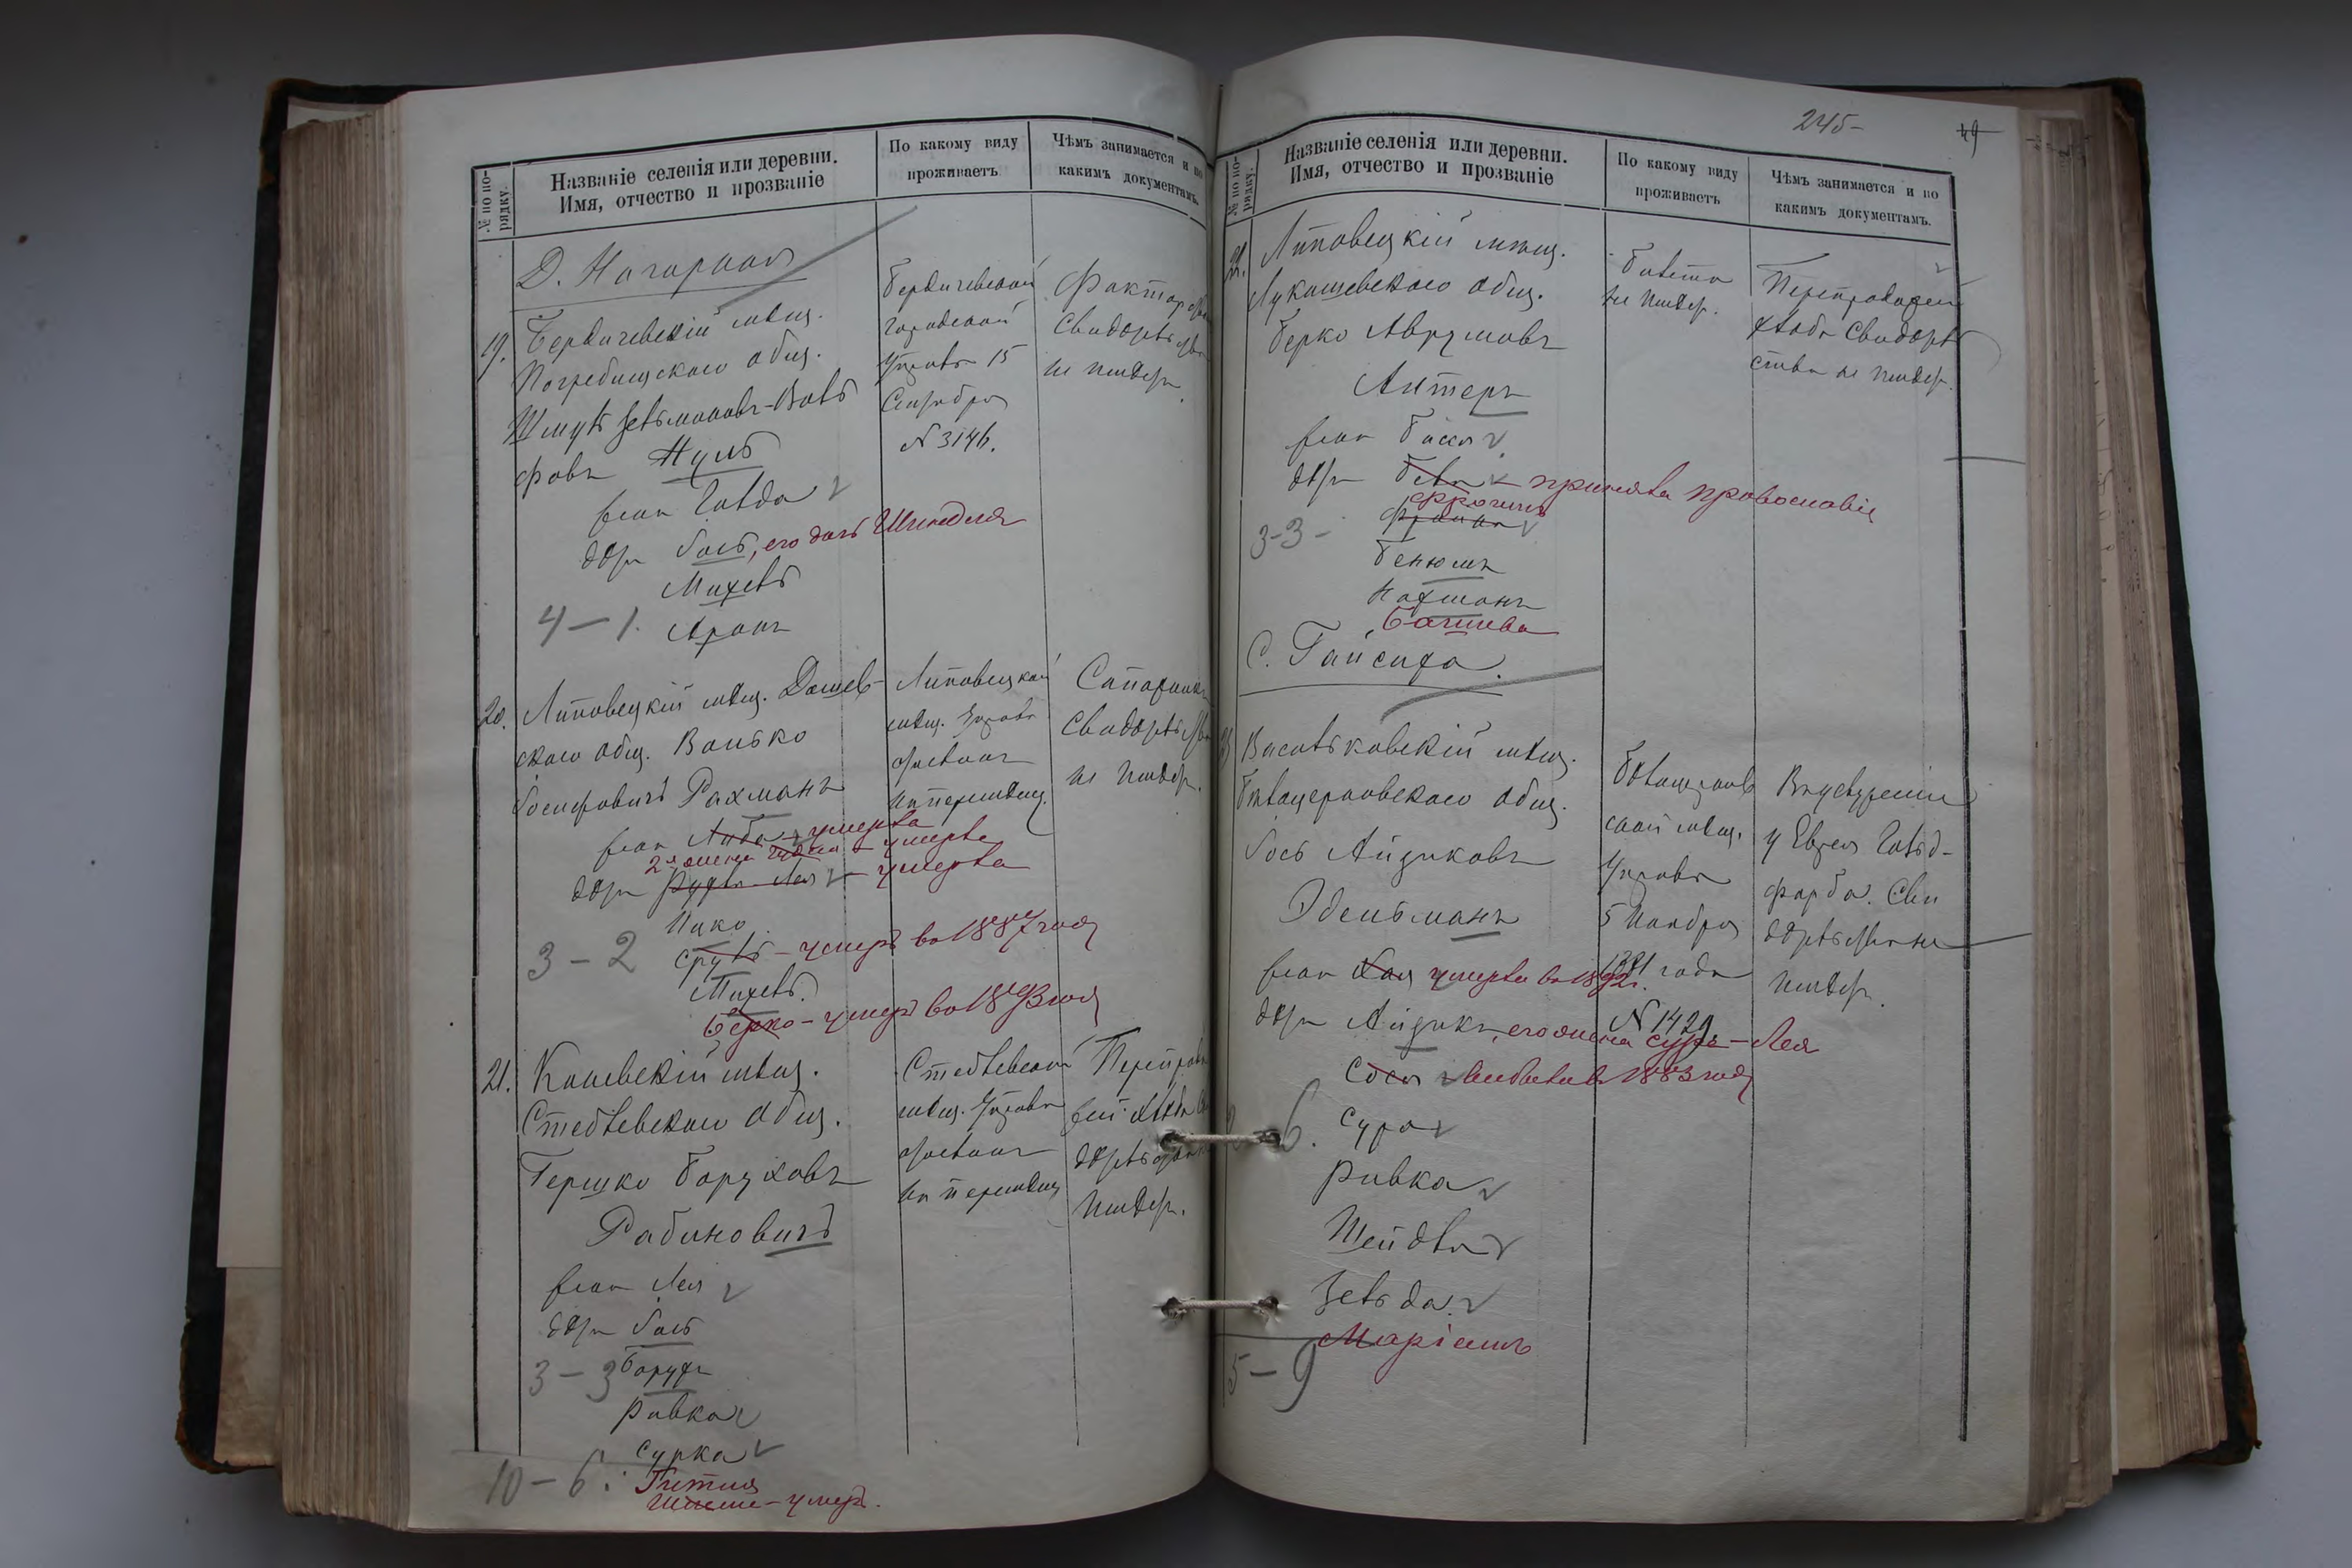 № по порядку.
Названіе селенія или деревни.
Имя, отчество и прозваніе
По какому виду
проживаетъ
Чѣмъ занимается и по
какимъ документамъ.
19.
Бердичевскій мѣщ.
Погребищскаго общ.
Шмуль Зельмановъ-Воль
фовъ
жена Голда
дѣти Іось, его дочь Шейндля
Михель
Аронъ
4-1.
Бердичевской
городской
Управы 15
Сентября
№ 3146.
Факторство
Свидѣтельства
не имѣетъ
20.
Липовецкій мѣщ. Дашев-
скаго общ. Волько
Іосифовичъ Рахманъ
жена Люба - умерла
2я жена - умерла
дѣти Рухля-Лея - умерла
Ицко
Сруль - умеръ въ 1887 году
Михель
Берко - умеръ въ 1893 году
3-2
Липовецкой
мѣщ. Управы
Сапожникъ
Свидѣтельства
не имѣетъ
21.
Каневскій мѣщ.
Стеблевскаго общ.
Гершко Боруховъ
Рабиновичъ
жена Лея
дѣти Іось
Борухъ
Ривка
Сурка
Гитля
- умеръ.
3-3
10-6.
Стеблевской
мѣщ. Управы
имѣетъ.
245-
49
№ по порядку.
Названіе селенія или деревни.
Имя, отчество и прозваніе
По какому виду
проживаетъ
Чѣмъ занимается и по
какимъ документамъ.
22.
Липовецкій мѣщ.
Лукашевскаго общ.
Берко Аврумовъ
Литеръ
жена Бася
дѣти Бейла - приняла православіе
Бенюмъ
Нахманъ
Батшева
3-3-
Билета
не имѣетъ.
хлѣба Свидѣтель
ства не имѣетъ.
С. Гайсиха.
23
Васильковскій мѣщ.
Бѣлоцерковскаго общ.
Іось Айзиковъ
Эдельманъ
жена Хая умерла въ 1892 г.
дѣти Айзикъ, его жена Сура-Лея
Сося выбыла въ 1883 году
Сура
Ривка
Шейдля
Зельда
Маріамъ
6.
5-9
Бѣлоцерков
ской мѣщ.
Управы
5 Ноября
1881 года
№ 1429
Въ услуженіи
у Еврея Гольд-
фарба. Сви
дѣтельства не
имѣетъ.